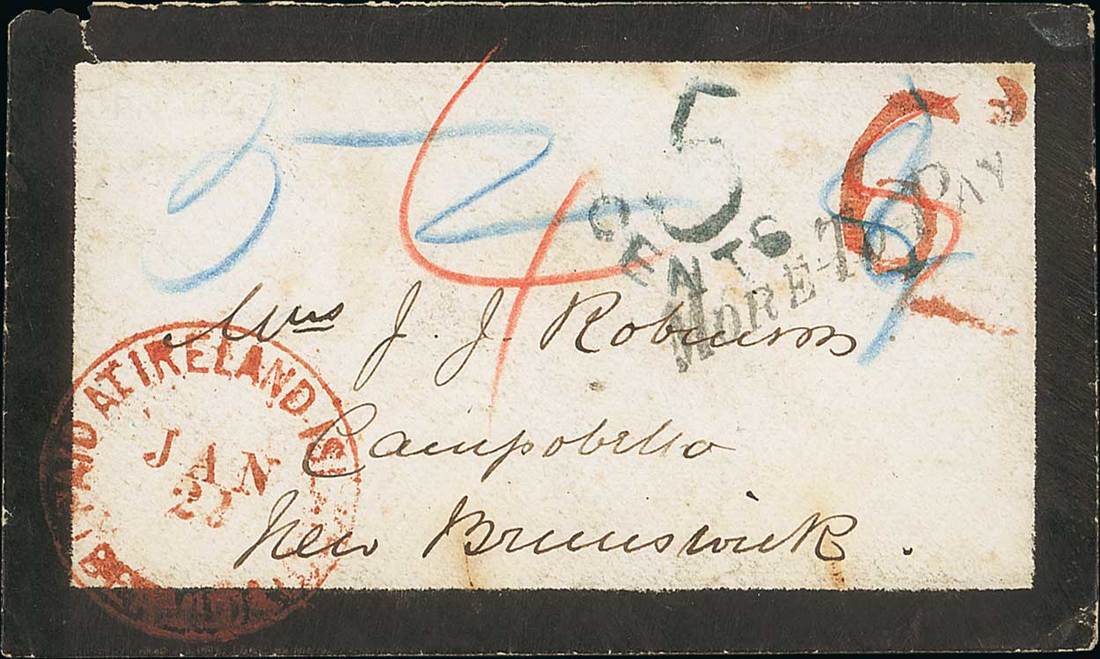 5 2 4 5 6
CENTS
MORE-TO-PAY
Mrs J. J. Robinson
PAID AT IRELAND IS
JAN
Campobello
New Brunswick.